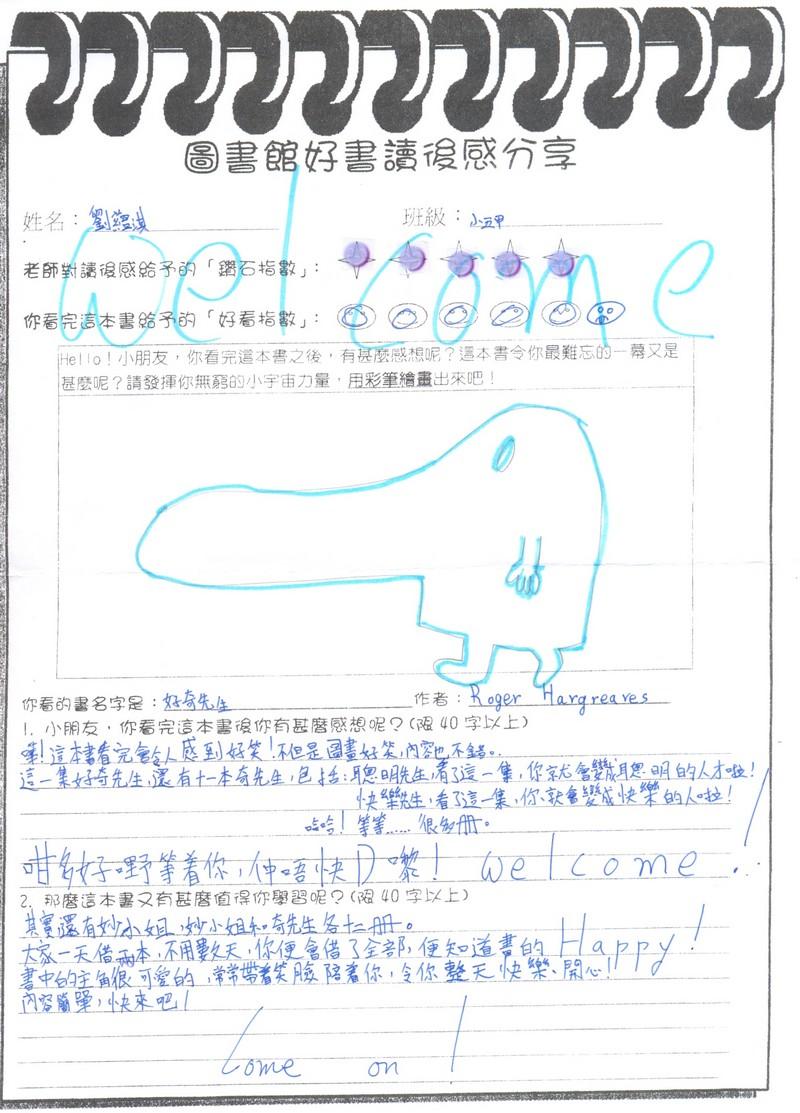 圖書館好書讀後感分享
姓名：劉蘊淇 班級：小五甲
welcome
老師對讀後感給予的「鑽石指數」：
你看完這本書給予的「好看指數」：
Hello！小朋友，你看完這本書之後，有甚麼感想呢？這本書令你最難忘的一幕又是
甚麼呢？請發揮你無窮的小宇宙力量，用彩筆繪畫出來吧！
你看的書名字是：好奇先生 作者：Roger Hargreaves
1. 小朋友，你看完這本書後你有甚麼感想呢？(限40字以上)
嘩！這本書看完會令人感到好笑！不但是圖畫好笑，內容也不錯。
這一集好奇先生，還有十一本奇先生，包括：聰明先生，看了這一集，你就會變成聰明的人才啦！
快樂先生，看了這一集，你就會變成快樂的人啦！
哈哈！等等……很多册。
咁多好嘢等着你，仲唔快D嚟！welcome！
2. 那麼這本書又有甚麼值得你學習呢？(限40字以上)
其實還有妙小姐，妙小姐和奇先生各十二册。
大家一天借兩本，不用數天，你便會借了全部，便知道書的Happy！
書中的主角很可愛的，常常帶着笑臉陪着你，令你整天快樂、開心！
內容簡單，快來吧！
Come on！